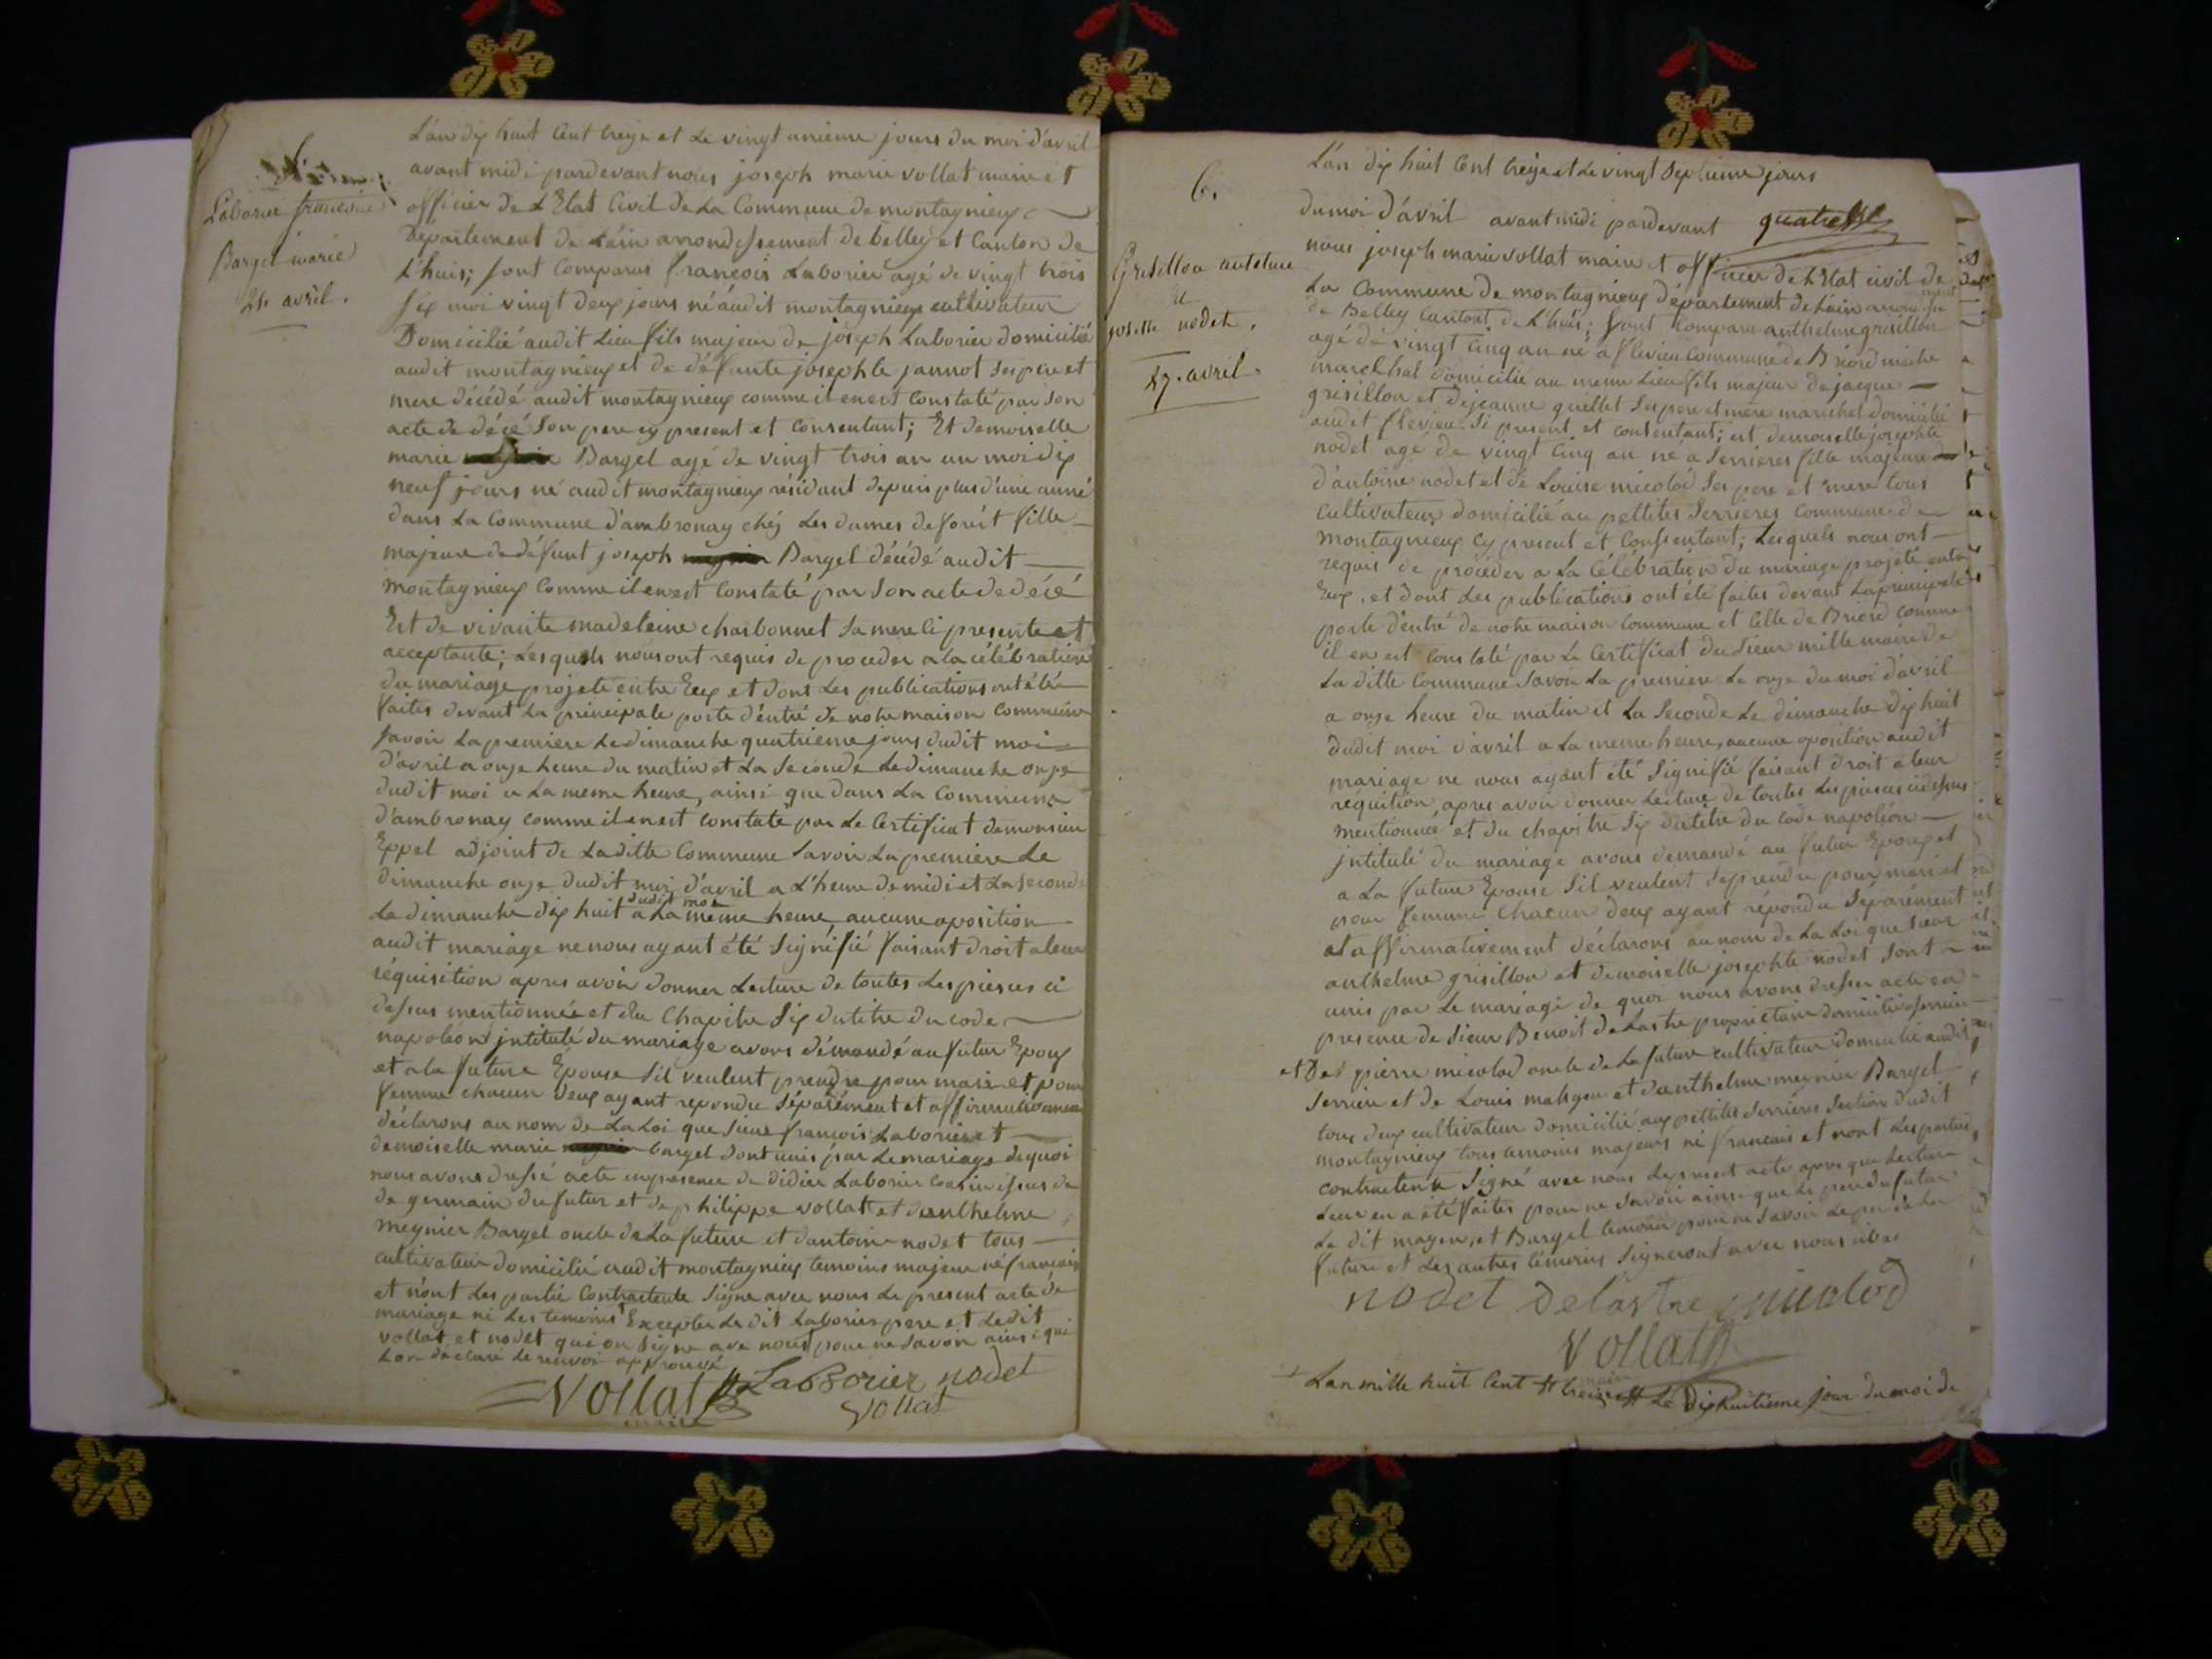 Laborier francois
Bargel marie
21 avril.
L'an dix huit Cent treize et Le vingt unieme jours du moi d'avril
avant midi pardevant nous joseph marie vollat maire et
officier de L'Etat Civil de La Commune de montagnieux
Departement de L'ain arrondissement de belley et Canton de
L'huis; sont Comparus francois Laborier agé de vingt trois
six moi vingt deux jours né audit montagnieux cultivateur
Domicilié audit Lieu fils majeur de joseph Laborier domicilié
audit montagnieux et de défunte josephte jannot ses pere et
mere décédé audit montagnieux comme il en est Constaté par son
acte de décé son pere cy present et Consentant; Et demoiselle
marie Bargel agé de vingt trois an un moi dix
neuf jours né audit montagnieux résidant depuis plus d'une anné
dans La Commune d'ambronay chéz Les dames de forêt fille
majeure de défunt joseph Bargel décédé audit
montagnieux Comme il en est Constaté par son acte de décé
Et de vivante madeleine charbonnet sa mere ci presente et
acceptante; Lesquels nous ont requis de proceder a La célébration
du mariage projeté entre Eux et dont Les publications ont été
faites devant La principale porte d'entré de notre maison Commune
savoir La premiere Le dimanche quatrieme jours dudit moi
d'avril a onze heure du matin et La seconde Le dimanche onze
dudit moi a La meme heure, ainsi que dans La Commune
d'ambronay comme il en est Constaté par Le Certificat de monsieur
Eppel adjoint de Laditte Commune savoir La premiere Le
dimanche onze dudit moi d'avril a L'heure de midi et La seconde
dudit moi
Le dimanche dix huit a La même heure, aucune oposition
audit mariage ne nous ayant été signifié faisant droit a leur
réquisition apres avoir donner Lecture de toutes Les pieces ci
dessus mentionnée et du Chapitre six du titre du code
napoléon jntitulé du mariage avons démandé au futur Epoux
et a la future Epouse s'il veulent prendre pour mari et pour
femme chacun deux ayant repondu séparément et affirmativement
déclarons au nom de La Loi que sieur françois Laborier et
demoiselle marie bargel sont unis par Le mariage de quoi
nous avons dressé acte en presence de didier Laborier Cousin issus de
de germain du futur et de philippe vollat et d'anthelme
meynier Bargel oncle de La future et d'antoine nodet tous
cultivateur domicilié audit montagnieux temoins majeur né francais
et n'ont Les partié Contractente signe avec nous Le present acte de
mariage ni Les temoins Excepter Le dit Laborier pere et Ledit
vollat et nodet qui on signe ave nous pour ne savoir ainsi qui
Lon déclaré Le renvoi approuvé
Vollat Laborier nodet
maire vollat
6.
Grisillon anthelme
et
josette nodet.
27. avril.
L'an dix huit Cent treize et Le vingt septieme jours
du moi d'avril avant midi pardevant quatre
nous joseph marie vollat maire et officier de L'Etat civil de
La Commune de montagnieux département de L'ain
de Belley Canton de L'huis; sont Comparu anthelme grisillon
agé de vingt Cinq an né a flevieu Commune de Briord
marechal domicilié au meme Lieu fils majeur de jacque
grisillon et de jeanne quillet ses pere et mere marechal domicilié
audit flevieu si present et Consentant; et demoiselle josephte
nodet agé de vingt Cinq an né a serrieres fille majeure
d'antoine nodet et de Louise micolod ses pere et mere tous
cultivateur domicilié au pettites Serrieres Commune de
montagnieux cy present et Consentant; Lesquels nous ont
requis de procéder a La Célébration du mariage projeté entre
Eux, et dont Les publications ont été faites devant La principale
porte d'entré de notre maison Commune et Celle de Briord comme
il en est Constaté par Le Certificat du sieur mille maire de
La ditte Commune savoir La premiere Le onze du moi d'avril
a onze heure du matin et La seconde Le dimanche dix huit
dudit moi d'avril a La meme heure, aucune oposition audit
mariage ne nous ayant été signifié faisant droit a leur
requition, apres avoir donner Lecture de toutes Les pieces cidessus
mentionnée et du chapitre six du titre du code napoléon
jntitulé du mariage avons demandé au futur Epoux et
a La future Epouse s'il veulent se prendre pour mari et
pour femme chacun deux ayant répondu séparément
et affirmativement déclarons au nom de La Loi que sieur
anthelme grisillon et demoiselle josephte nodet sont
unis par Le mariage de quoi nous avons dresser acte en
presence de sieur Benoit de Lastre proprietaire domicilié
et de pierre micolod oncle de La future cultivateur domicilié audit
serriere et de Louis et d'anthelme meynier Bargel
tous deux cultivateur domicilié aux pettites serrieres section dudit
montagnieux tous temoins majeurs né francais et n'ont Les partiés
contractente signé avec nous Le present acte apres que Lecture
Leur en a été faites pour ne savoir ainsi que Le pere du futur
Le dit et Bargel temoins pour ne savoir Le pere de La
future et Les autres témoins signeront avec nous
nodet Delastre micolod
Vollat
L'an mille huit Cent treize Le dix huitieme jour du moi de